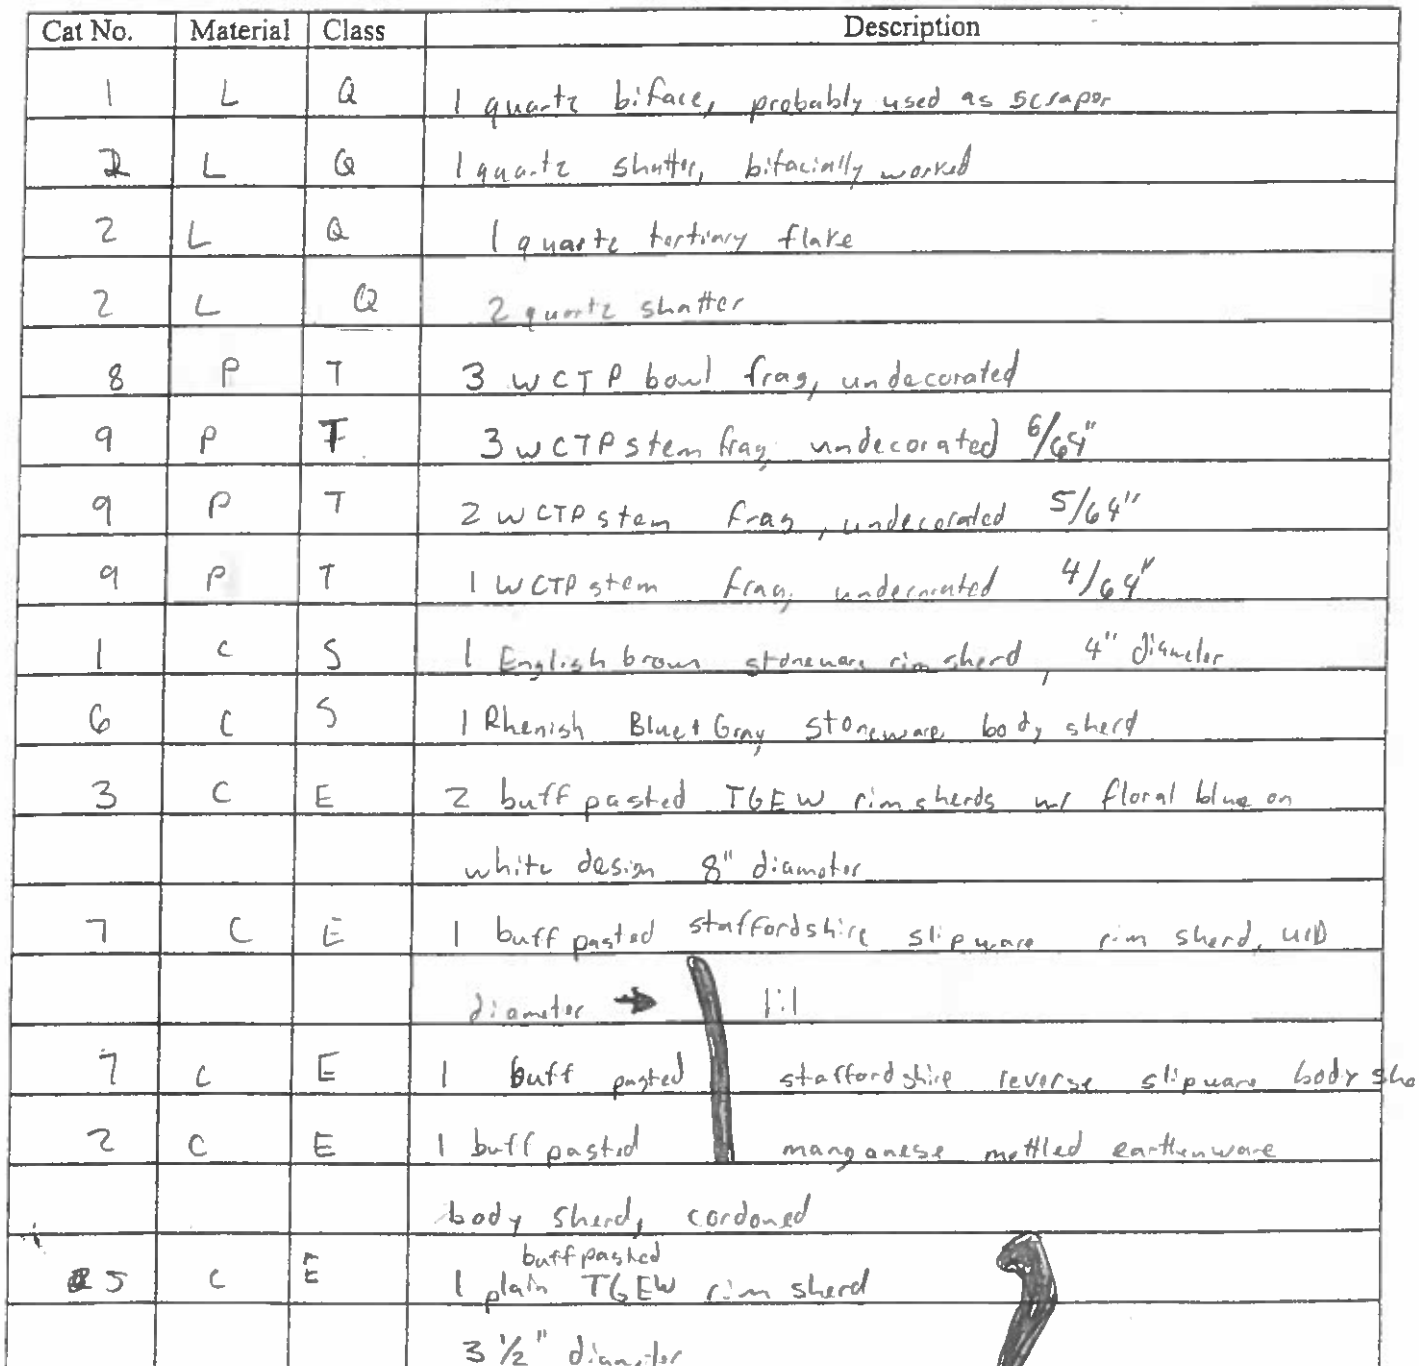 Cat No. Material Class Description
1 L Q 1 quartz biface, probably used as scrapor
2 L Q 1 quartz shatter, bifacially worked
2 L Q 1 quartz tertiary flake
2 L Q 2 quartz shatter
8 P T 3 WCTP bowl frag, undecorated
9 P T 3 WCTP stem frag, undecorated 6/64"
9 P T 2 WCTP stem frag, undecorated 5/64"
9 P T 1 WCTP stem frag, undecorated 4/64"
1 C S 1 English brown stoneware rim sherd, 4" diameter
6 C S 1 Rhenish Blue + Gray stoneware body sherd
3 C E 2 buff pasted TGEW rim sherds w/ floral blue on
white design 8" diameter
7 C E 1 buff pasted staffordshire slipware rim sherd, UID
diameter → 1:1
7 C E 1 buff pasted staffordshire reverse slipware body she
2 C E 1 buff pasted manganese mottled earthenware
body sherd, cordoned
buff pasted
5 C E 1 plain TGEW rim sherd
3 1/2" diameter